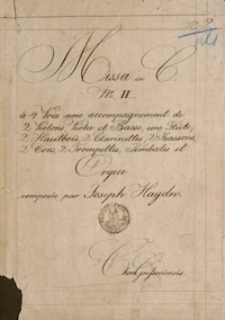 Missa in C
No. II.
à 4 Voix avec accompagnement de
2 Violons, Viola et Basse, une Flûte,
2 Hautbois, 2 Clarinettes, 2 Bassons,
2 Cors, 2 Trompettes, Timbales et
Orgue
composée par Joseph Haydn.